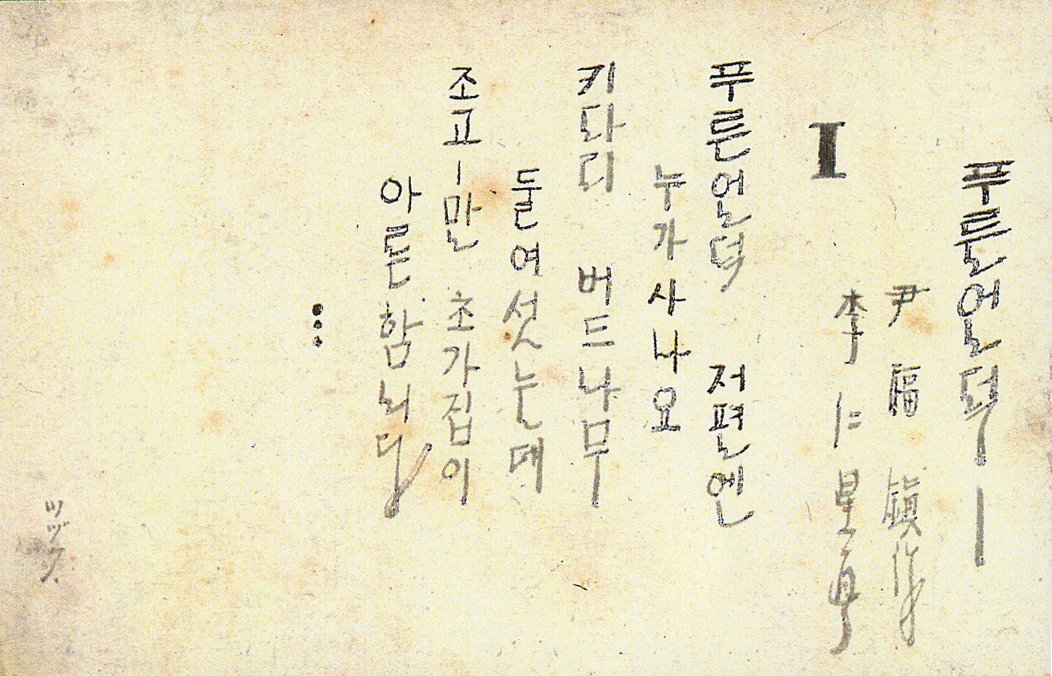 푸른언덕
尹 福 鎭 作
李 仁 星
I
푸른언덕 저편엔
누가사나요
키다리 버드나무
둘여섯눈데
조고ー만 초가집이
아른함니다
⋮
ツヅク